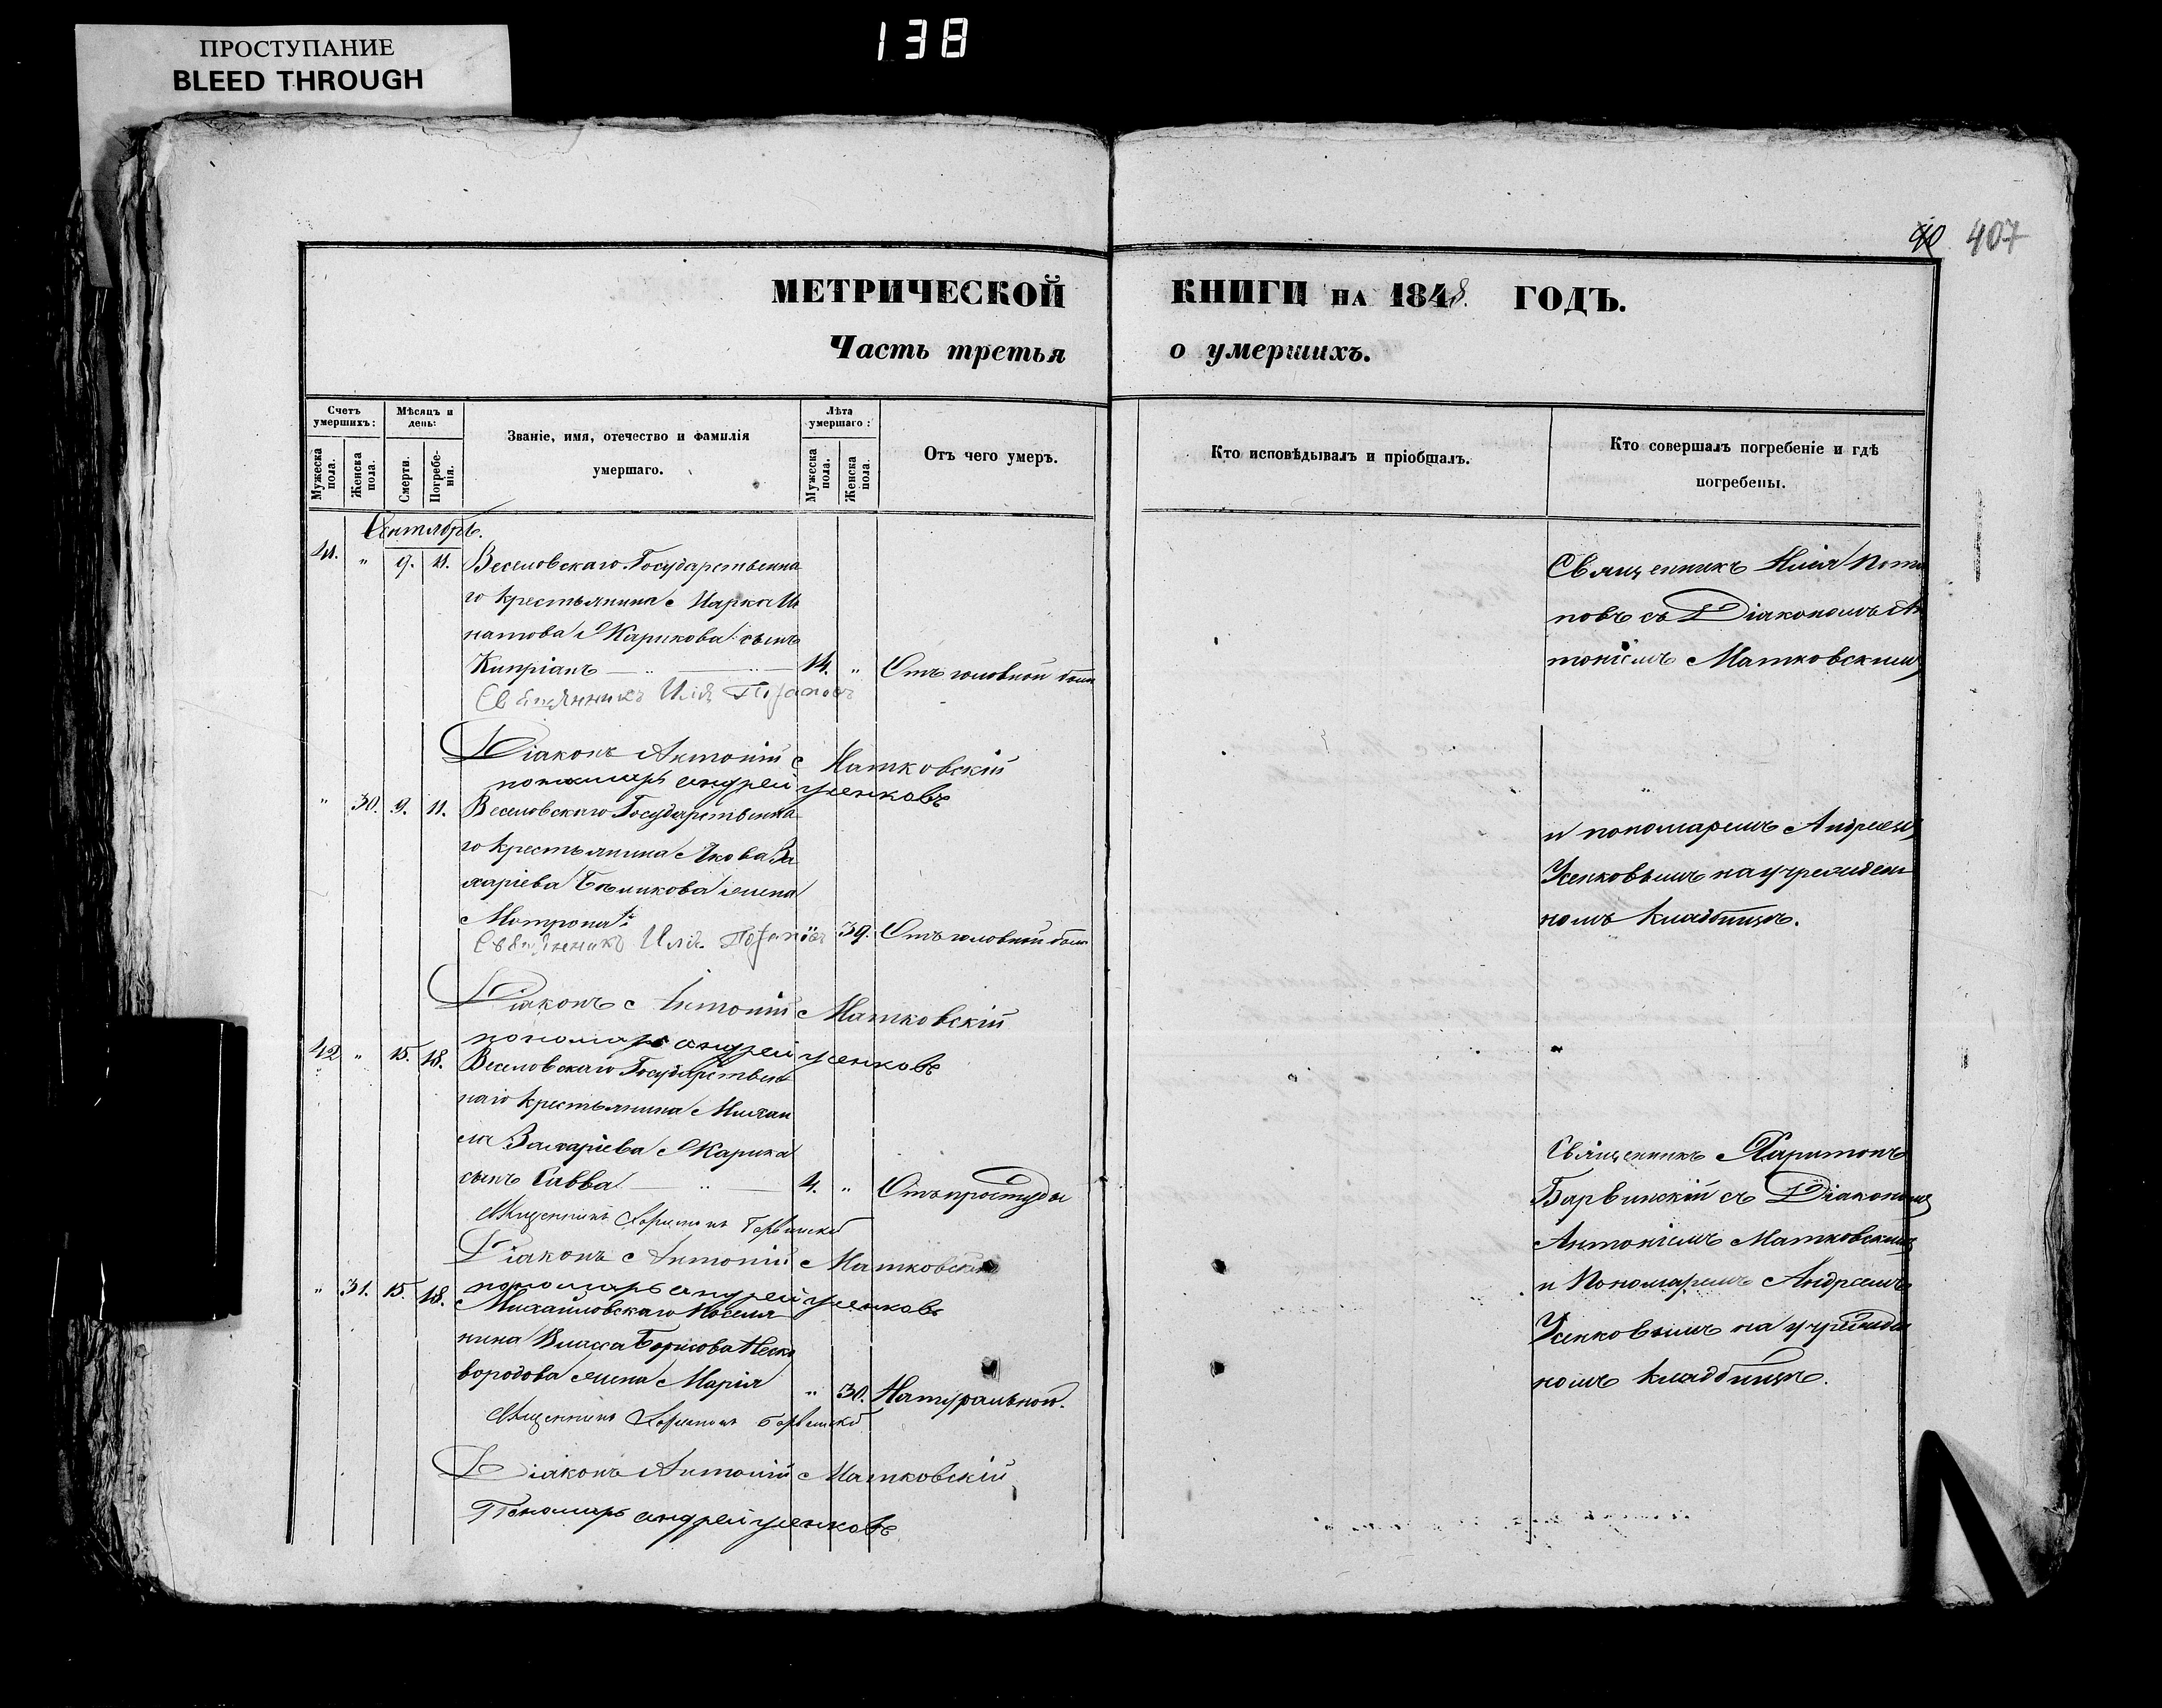 138
ПРОСТУПАНИЕ
BLEED THROUGH
90 407
МЕТРИЧЕСКОЙ КНИГИ НА 1848. ГОДЪ.
Часть третья о умершихъ.
Счетъ умершихъ:
Мужеска пола.
Женска пола.
Мѣсяцъ и день:
Смерти.
Погребенія.
Званіе, имя, отечество и фамилія
умершаго.
Лѣта умершаго:
Мужеска пола.
Женска пола.
Отъ чего умеръ.
Кто исповѣдывалъ и пріобщалъ.
Кто совершалъ погребеніе и гдѣ
погребены.
Сентябрь.
41. " 9. 11. Веселовскаго Государственна
го крестьянина Марка
Жарикова сынъ
Кипріанъ 14. " Отъ головной боли
Священникъ Илія Потаповъ
Діаконъ Антоній Матковскій
пономарь андрей усенковъ
Священникъ Илія Пота
повъ съ Діакономъ Ан
тоніемъ Матковскимъ
" 30. 9. 11. Веселовскаго Государственна
го крестьянина Якова За
харіева Бѣликова жена
Мотрона " 39. Отъ головной боли
Священникъ Илія Потаповъ
Діаконъ Антоній Матковскій
пономарь андрей усенковъ
и пономаремъ Андреемъ
Усенковымъ на учрежден
номъ кладбищѣ.
42 " 15. 18. Веселовскаго Государствен
наго крестьянина Михаи
ла Захаріева Жарика
сынъ Савва 4. " Отъ простуды
Священникъ Харитонъ Барвинскій
Діаконъ Антоній Матковскій
пономарь андрей усенковъ
Священникъ Харитонъ
Барвинскій съ Діакономъ
Антоніемъ Матковскимъ
и Пономаремъ Андреемъ
Усенковымъ на учрежден
номъ кладбищѣ.
" 31. 15. 18. Михайловскаго Поселя
нина Власа Борисова Неско
вородова жена Марія " 30. Натуральной.
Священникъ Харитонъ Барвинскій
Діаконъ Антоній Матковскій
Пономарь андрей усенковъ